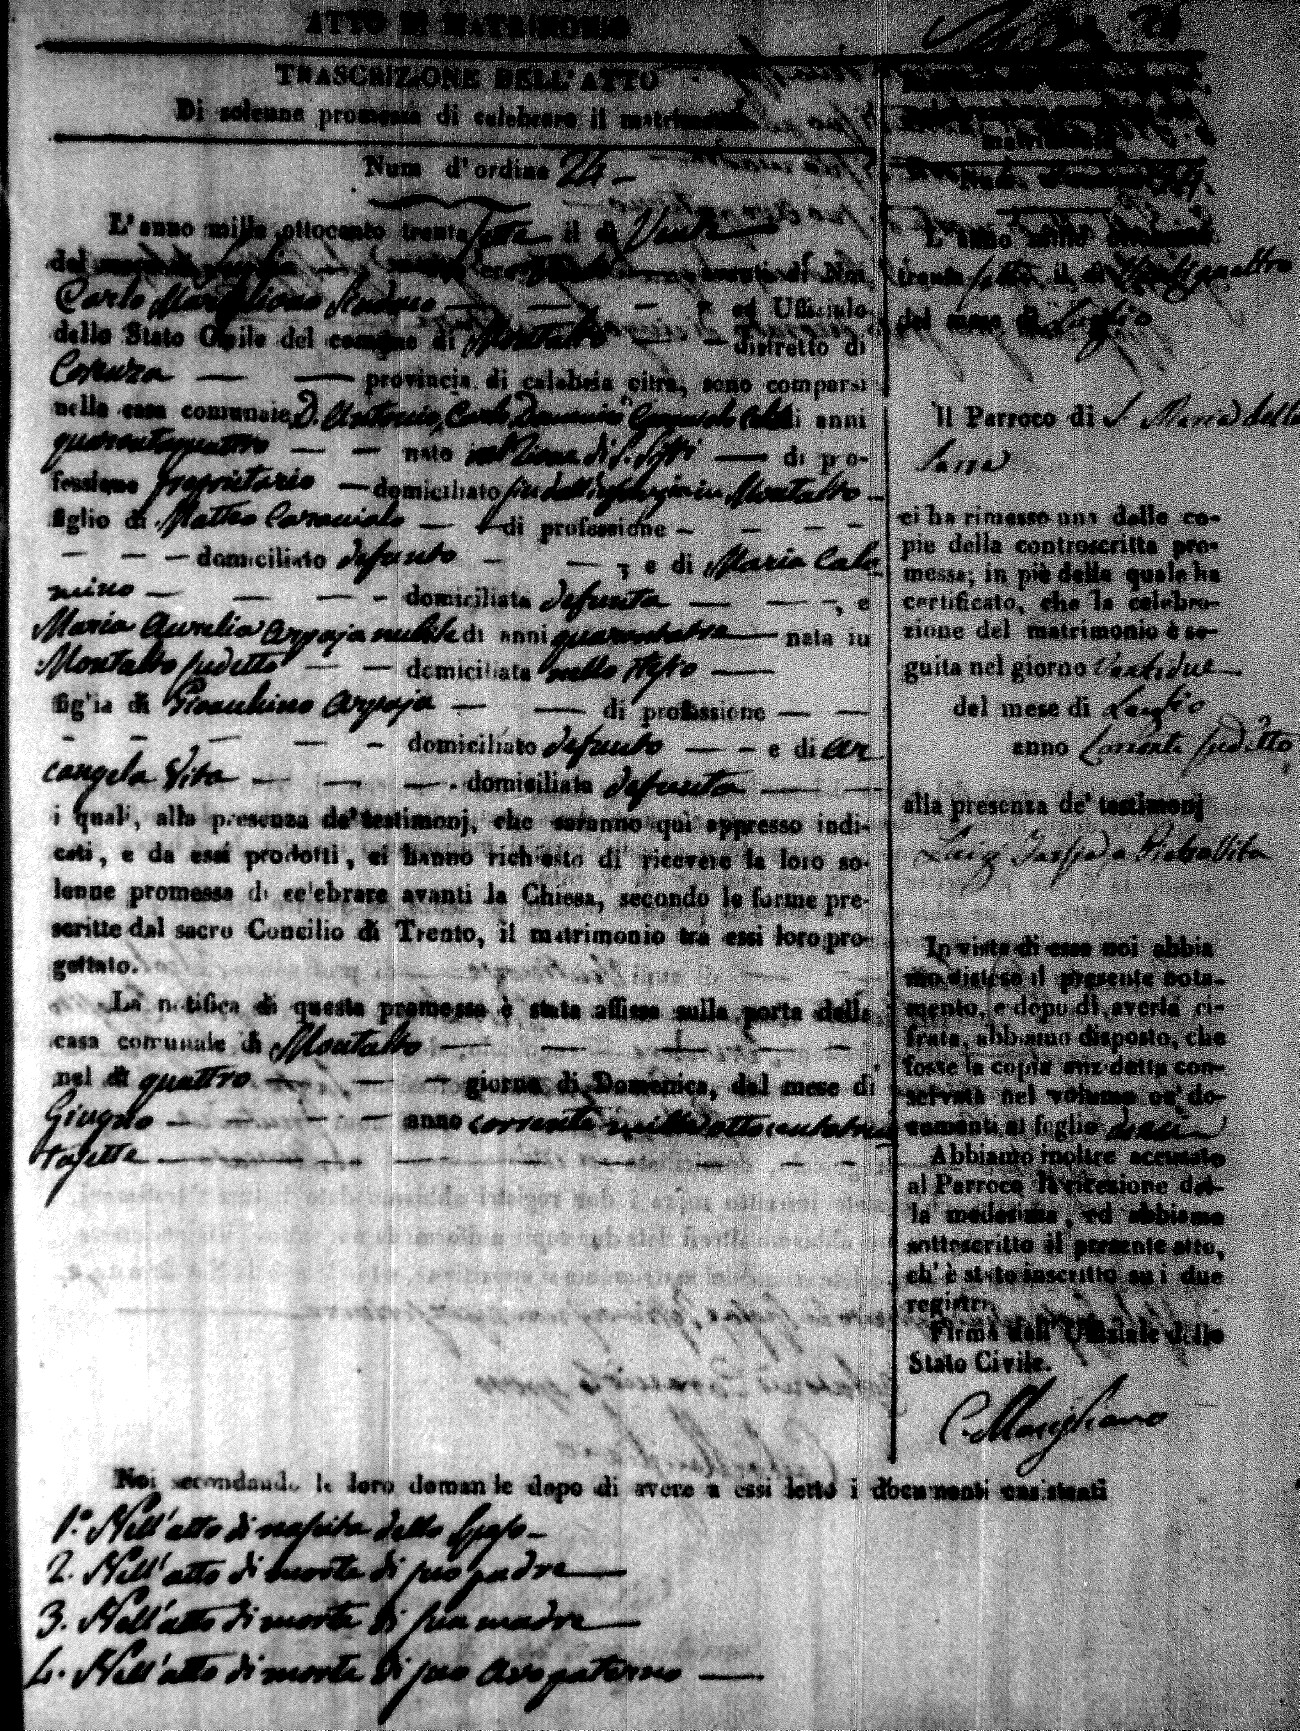 ATTO DI MATRIMONIO
TRASCRIZIONE DELL' ATTO
Di solenne promessa di celebrare il matrimonio
Num d' ordine 24
L' anno mille ottocento trenta sette il dì Venti
del mese di
Carlo Marigliano Sindaco ed Ufficiale
dello Stato Civile del comune di Montalto distretto di
Cosenza provincia di calabria citra, sono comparsi
nella casa comunale D. Antonio, Carlo, Domenico Caracciolo di anni
quarantaquattro nato in di pro-
fessione proprietario domiciliato in Montalto
figlio di Matteo Caracciolo di professione
domiciliato defunto , e di Maria Calo
mino domiciliata defunta , e
Maria Aurelia Arpaja nubile di anni quarantatre nata in
Montalto sudetto domiciliata nello stesso
figlia di Gioachino Arpaja di professione
domiciliato defunto e di Ar
cangela Vita domiciliata defunta
i quali, alla presenza de' testimonj, che saranno quì appresso indi-
cati, e da essi prodotti, ci hanno richiesto di ricevere la loro so-
lenne promessa di celebrare avanti la Chiesa, secondo le forme pre-
scritte dal sacro Concilio di Trento, il matrimonio tra essi loro pro-
gettato.
La notifica di questa promessa è stata affissa sulla porta della
casa comunale di Montalto
nel dì quattro giorno di Domenica, del mese di
Giugno anno corrente mille ottocento tren
tasette
Noi secondando le loro domande dopo di avere a essi letto i documenti consistenti
1.° Nell' atto di nascita dello Sposo
2. Nell' atto di morte di suo padre
3. Nell' atto di morte di sua madre
4. Nell' atto di morte di suo Avo paterno
L' anno mille ottocento
trenta sette il dì Ventiquattro
del mese di Luglio
Il Parroco di S. Maria della
Serra
ci ha rimesso una delle co-
pie della controscritta pro-
messa; in piè della quale ha
certificato, che la celebra-
zione del matrimonio è se-
guita nel giorno Ventidue
del mese di Luglio
anno Corrente sudetto
alla presenza de' testimonj
Luigi
In vista di essa noi abbia
mo disteso il presente nota-
mento, e dopo di averla ci-
frata, abbiamo disposto, che
fosse la copia anzdetta con-
servata nel volume de' do-
cumenti al foglio
Abbiamo inoltre accusato
al Parroco la ricezione del-
la medesima, ed abbiamo
sottoscritto il presente atto,
ch' è stato inscritto su i due
registri.
Firma dell' Uffiziale dello
Stato Civile.
C. Marigliano